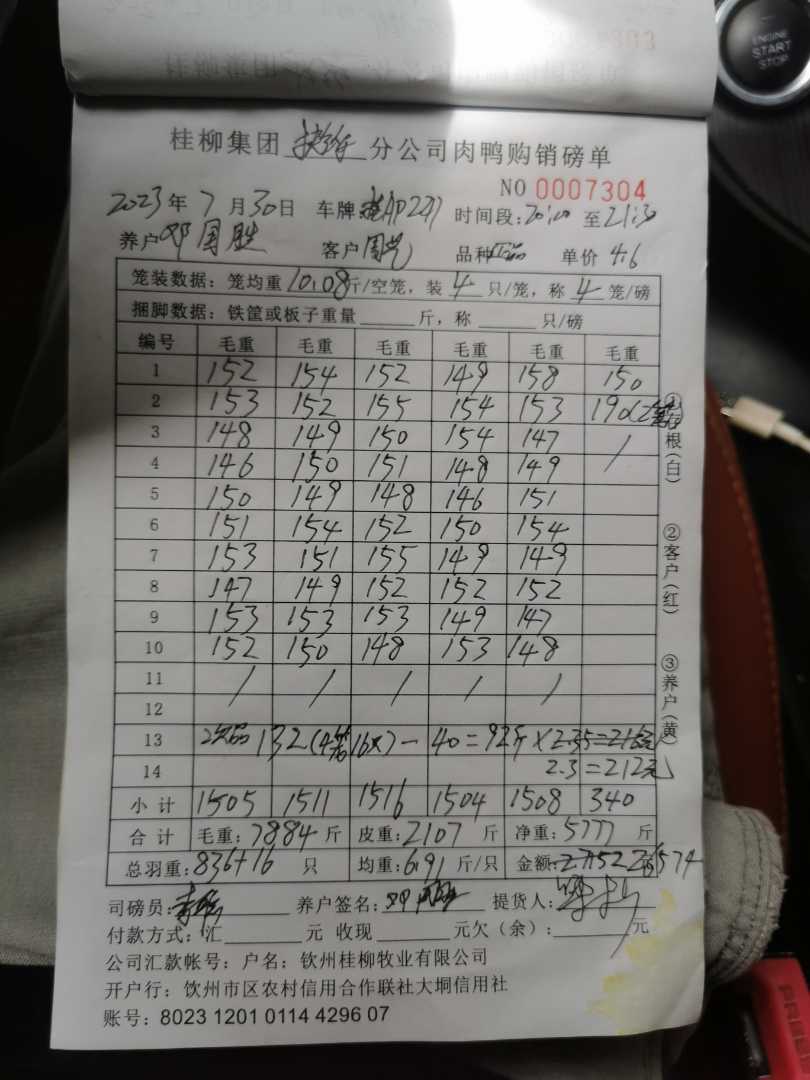 桂柳集团 分公司肉鸭购销磅单
NO 0007304
2023年7月30日 车牌 AP2271 时间段:20:00 至21:30
养户 邓国胜 客户 周 品种 单价 4.6
笼装数据：笼均重10.08斤/空笼，装 4 只/笼，称 4 笼/磅
捆脚数据：铁筐或板子重量 斤，称 只/磅
编号 毛重 毛重 毛重 毛重 毛重 毛重
1 152 154 152 149 158 150
2 153 152 155 154 153 190(2笼)
3 148 149 150 154 147 /
4 146 150 151 148 149
5 150 149 148 146 151
6 151 154 152 150 154
7 153 151 155 149 149
8 147 149 152 152 152
9 153 153 153 149 147
10 152 150 148 153 148
11 / / / / /
12
13 次品 132(4笼16只)-40=92斤×2.35=216元
14 2.3=212元
小计 1505 1511 1516 1504 1508 340
合计 毛重:7884斤 皮重:2107斤 净重:5777斤
总羽重:836+16 只 均重:6.91斤/只 金额: 26574
①存根(白)
②客户(红)
③养户(黄)
司磅员: 养户签名: 提货人:
付款方式：汇 元 收现 元欠（余）: 元
公司汇款帐号：户名：钦州桂柳牧业有限公司
开户行：钦州市区农村信用合作联社大垌信用社
账号：8023 1201 0114 4296 07
ENGINE
START
STOP